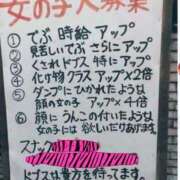 女の子大募集
① でぶ 時給 アップ
② 見苦しいでぶ さらに アップ
③ くされドブス 特に アップ
④ 化け物クラス アップ×2倍
⑤ ダンプにひかれたような
顔の女の子 アップ×4倍
⑥ 顔にうんこの付いたような
女の子には 欲しいだけあげます
スナック
ドブスは貴方を待ってます。